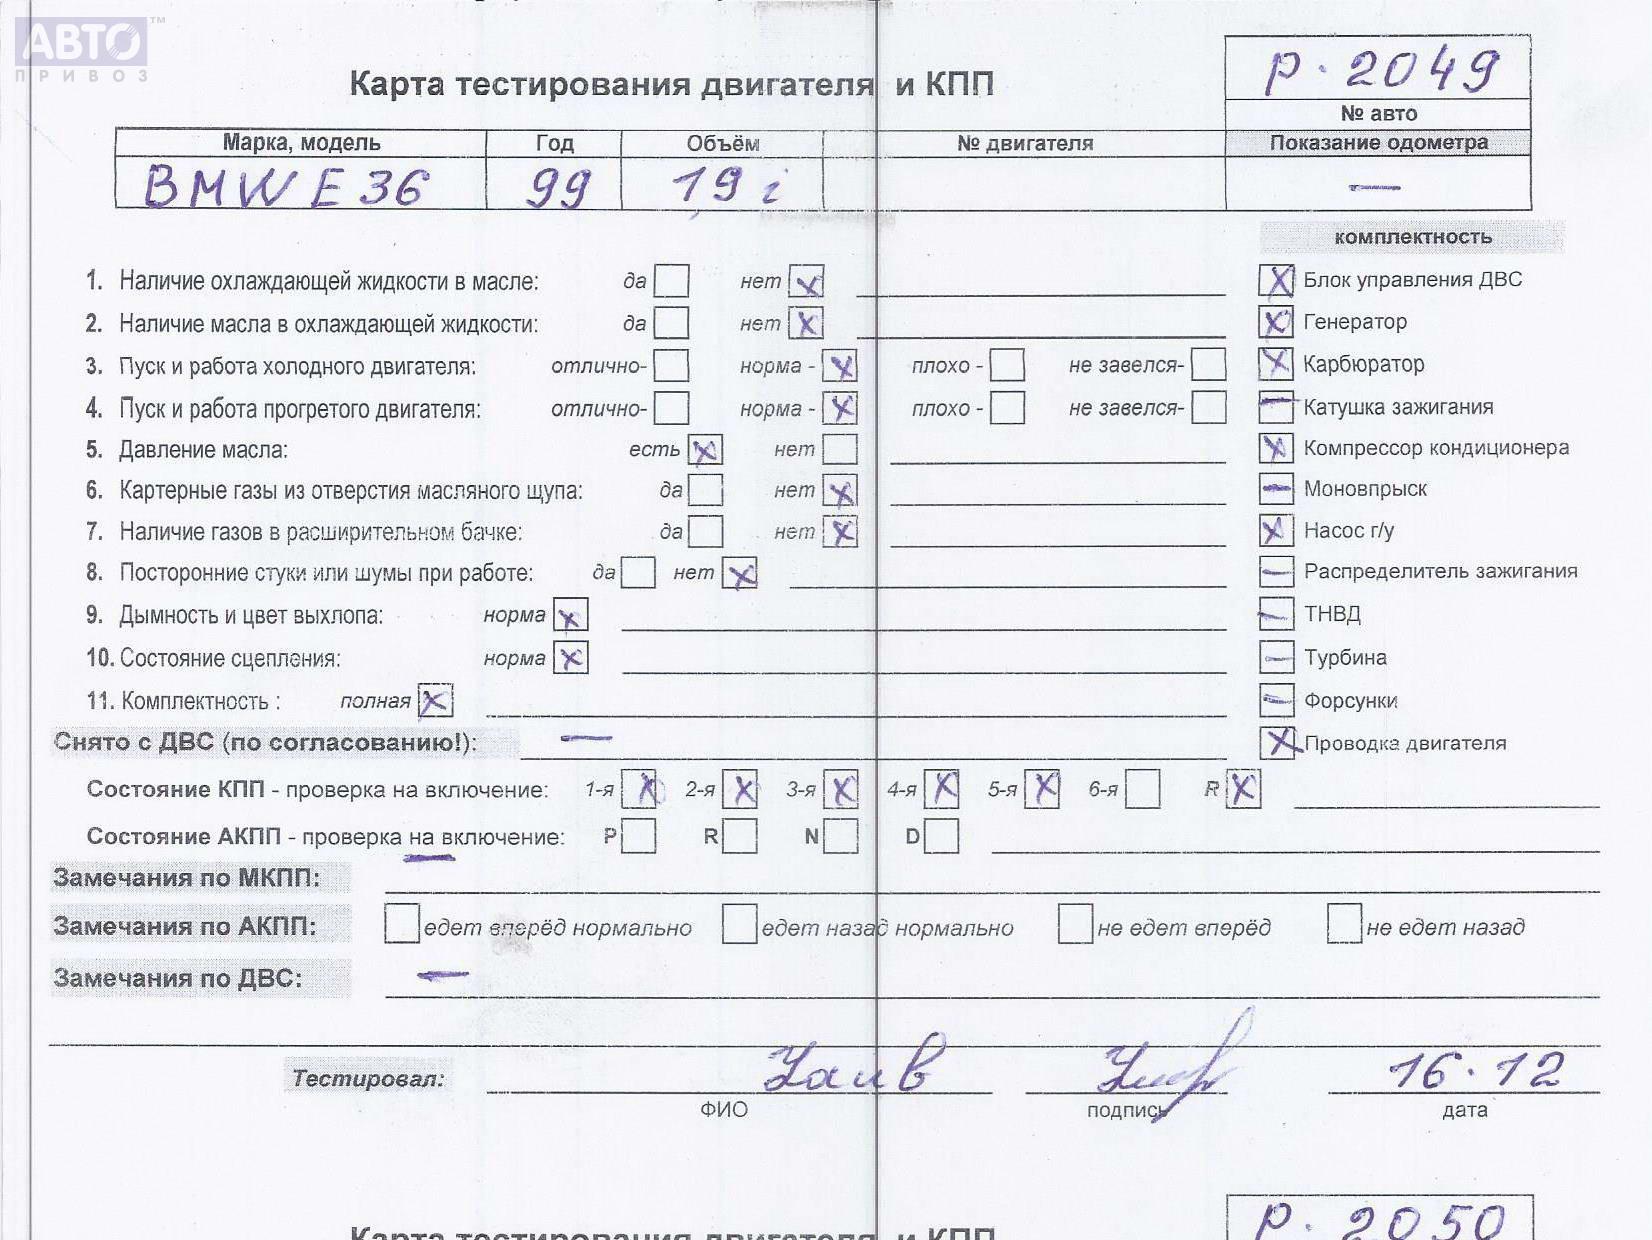 АВТО™
ПРИВОЗ
Карта тестирования двигателя и КПП
Р·2049
№ авто
Марка, модель Год Объём № двигателя Показание одометра
BMW E36 99 19i —
комплектность
1. Наличие охлаждающей жидкости в масле: да нет X
X Блок управления ДВС
2. Наличие масла в охлаждающей жидкости: да нет X
X Генератор
3. Пуск и работа холодного двигателя: отлично- норма - X плохо - не завелся-
X Карбюратор
4. Пуск и работа прогретого двигателя: отлично- норма - X плохо - не завелся-
— Катушка зажигания
5. Давление масла: есть X нет
X Компрессор кондиционера
6. Картерные газы из отверстия масляного щупа: да нет X
— Моновпрыск
7. Наличие газов в расширительном бачке: да нет X
X Насос г/у
8. Посторонние стуки или шумы при работе: да нет X
— Распределитель зажигания
9. Дымность и цвет выхлопа: норма X
— ТНВД
10. Состояние сцепления: норма X
— Турбина
11. Комплектность : полная X
— Форсунки
Снято с ДВС (по согласованию!): —
X Проводка двигателя
Состояние КПП - проверка на включение: 1-я X 2-я X 3-я X 4-я X 5-я X 6-я R X
Состояние АКПП - проверка на включение: P R N D
Замечания по МКПП: —
Замечания по АКПП: едет вперёд нормально едет назад нормально не едет вперёд не едет назад
Замечания по ДВС: —
Тестировал: 16·12
ФИО подпись дата
Карта тестирования двигателя и КПП
Р·2050